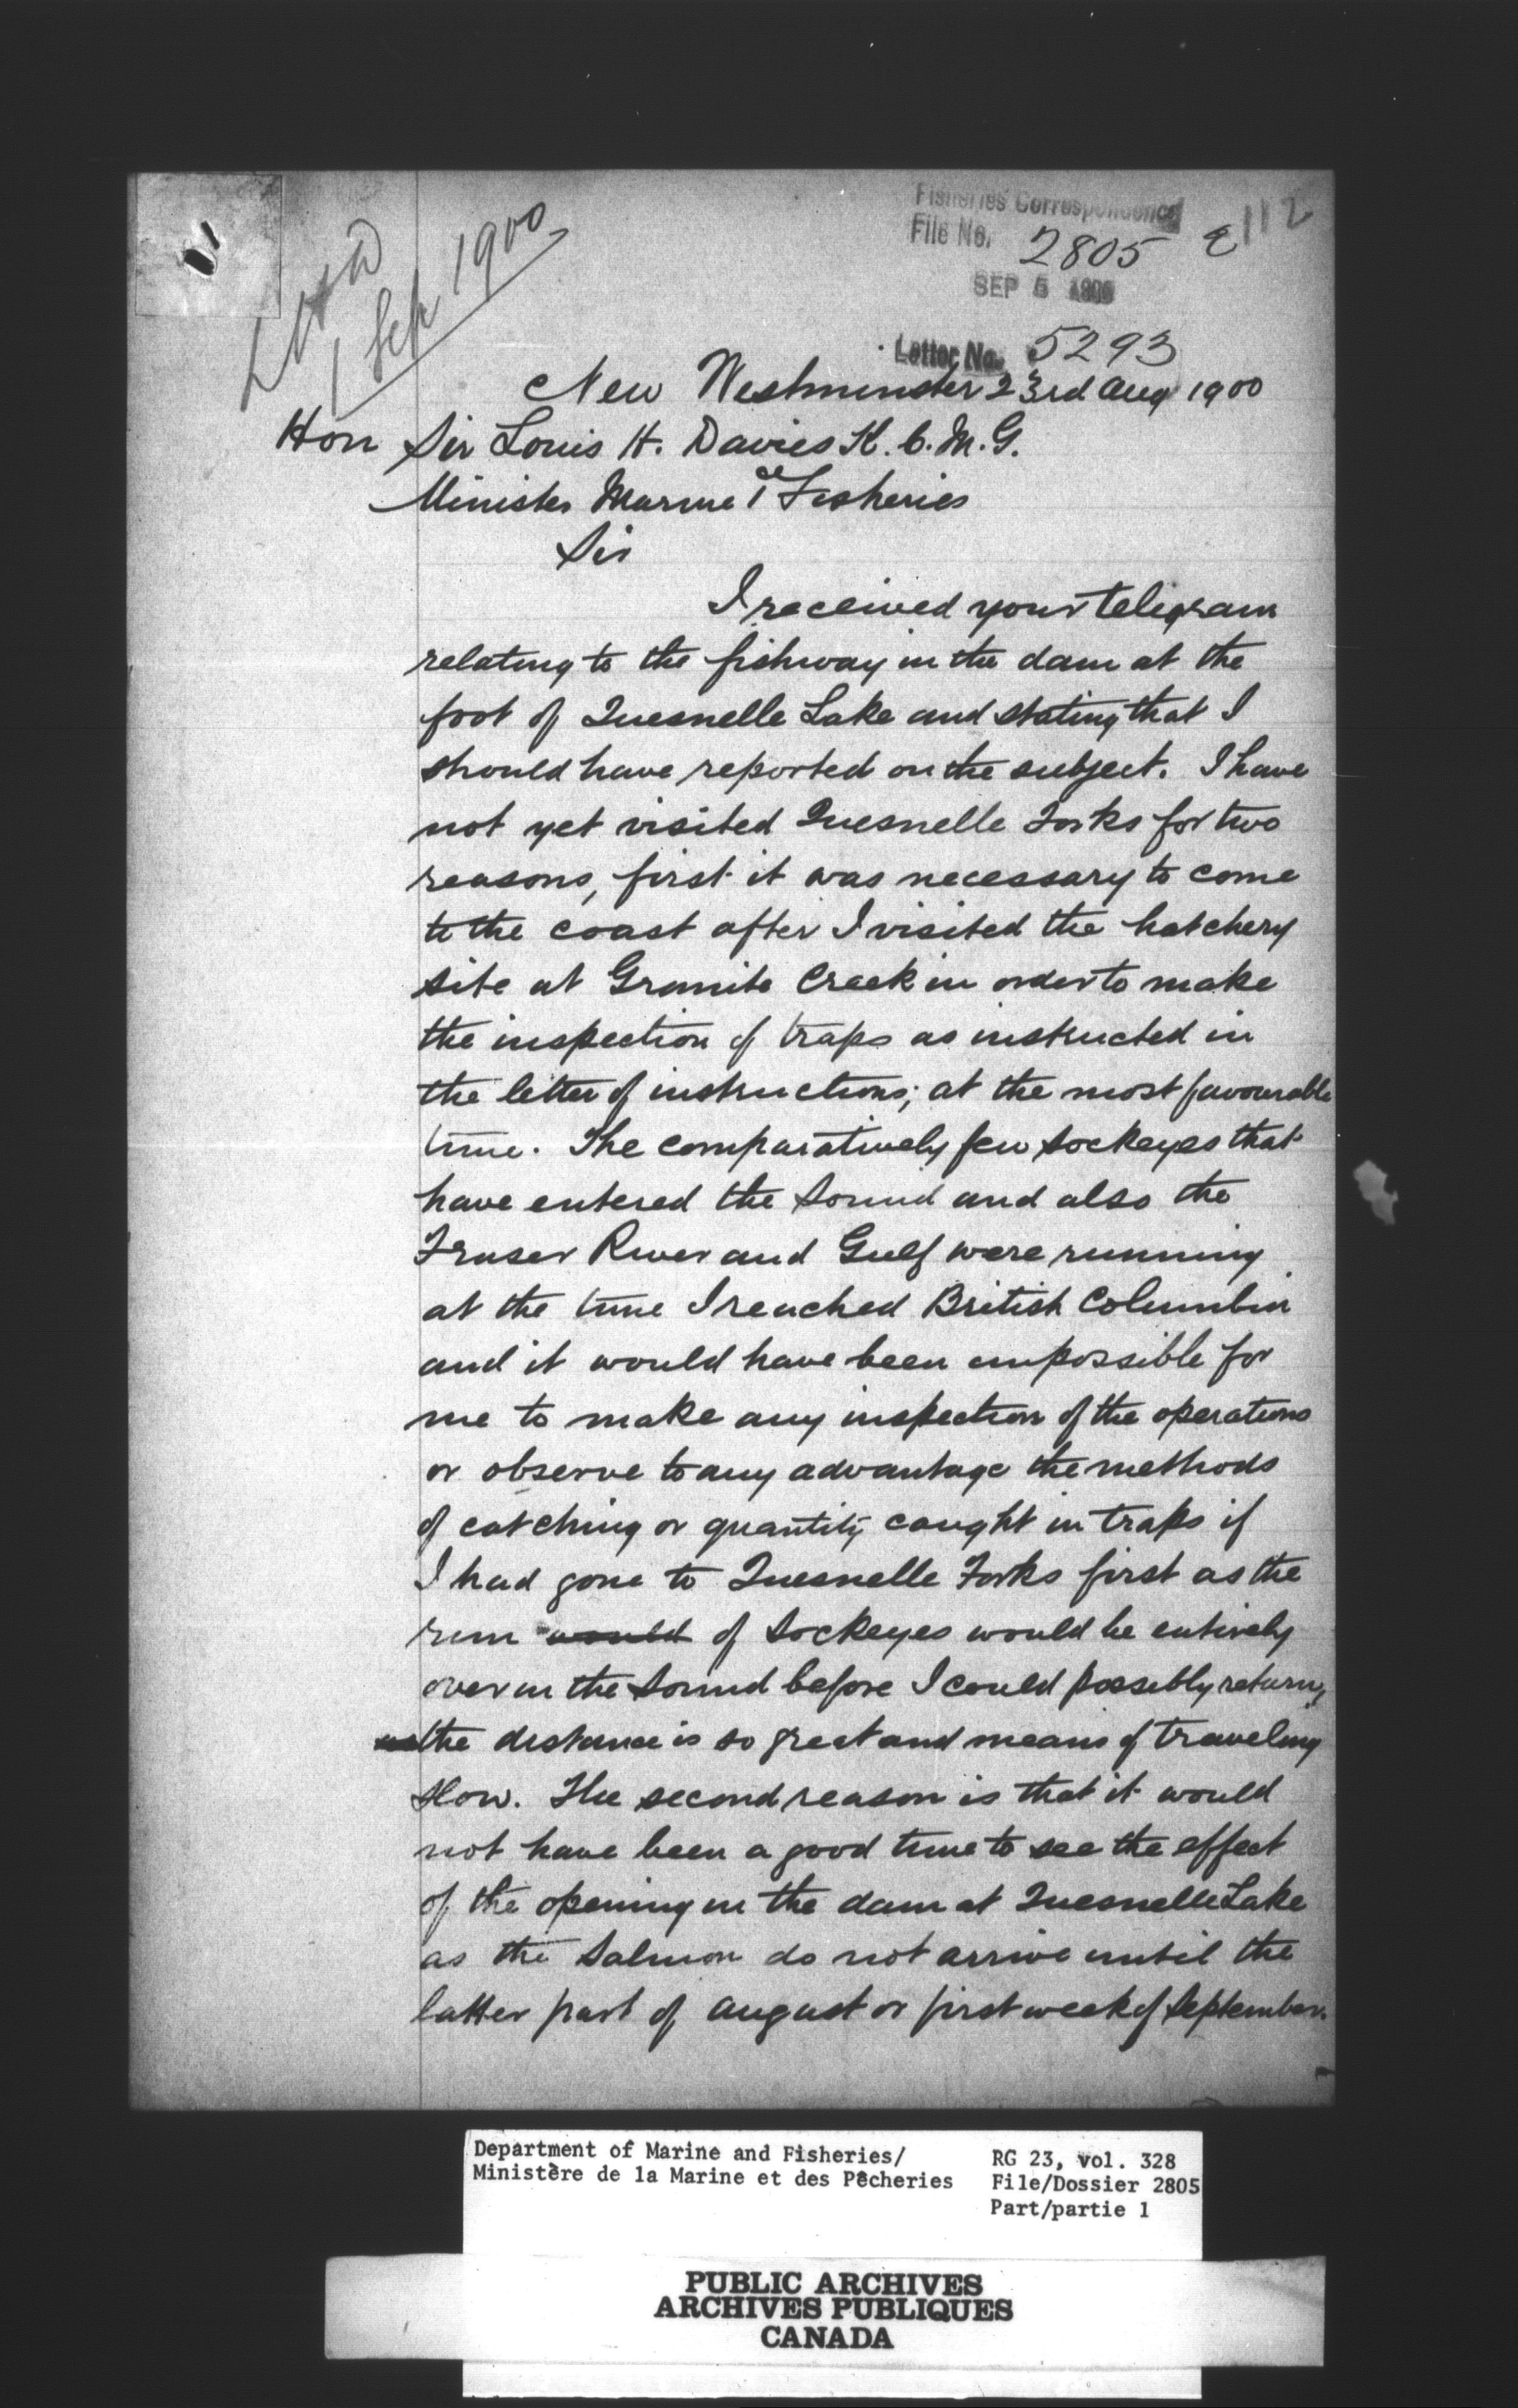 Fisheries Correspondence 112
File No. 2805
SEP 5 1900
1 Sep 1900
Letter No. 5293
New Westminster 23rd Aug 1900
Hon Sir Louis H. Davies K.C.M.G.
Minister Marine & Fisheries
Sir
I received your telegram
relating to the fishway in the dam at the
foot of Quesnelle Lake and stating that I
should have reported on the subject. I have
not yet visited Quesnelle Forks for two
reasons, first it was necessary to come
to the coast after I visited the hatchery
site at Granite Creek in order to make
the inspection of traps as instructed in
the letter of instructions; at the most favourable
time. The comparatively few sockeyes that
have entered the Sound and also the
Fraser River and Gulf were running
at the time I reached British Columbia
and it would have been impossible for
me to make any inspection of the operations
or observe to any advantage the methods
of catching or quantity caught in traps if
I had gone to Quesnelle Forks first as the
run would of Sockeyes would be entirely
over in the Sound before I could possibly return,
the distance is so great and means of traveling
slow. The second reason is that it would
not have been a good time to see the effect
of the opening in the dam at Quesnelle Lake
as the Salmon do not arrive until the
latter part of August or first week of September.
Department of Marine and Fisheries/
Ministère de la Marine et des Pêcheries
RG 23, vol. 328
File/Dossier 2805
Part/partie 1
PUBLIC ARCHIVES
ARCHIVES PUBLIQUES
CANADA